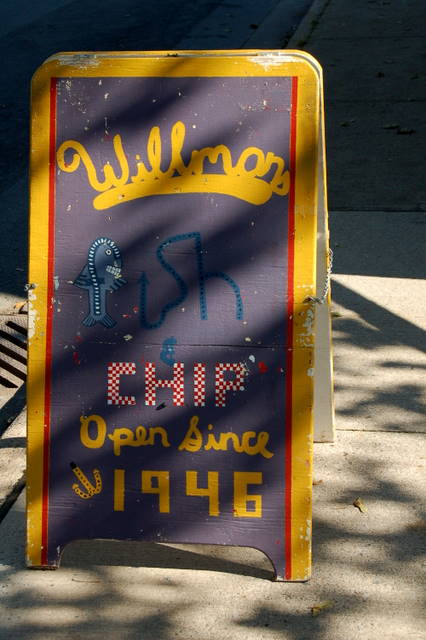 Willmans
fish
&
CHIP
Open Since
1946